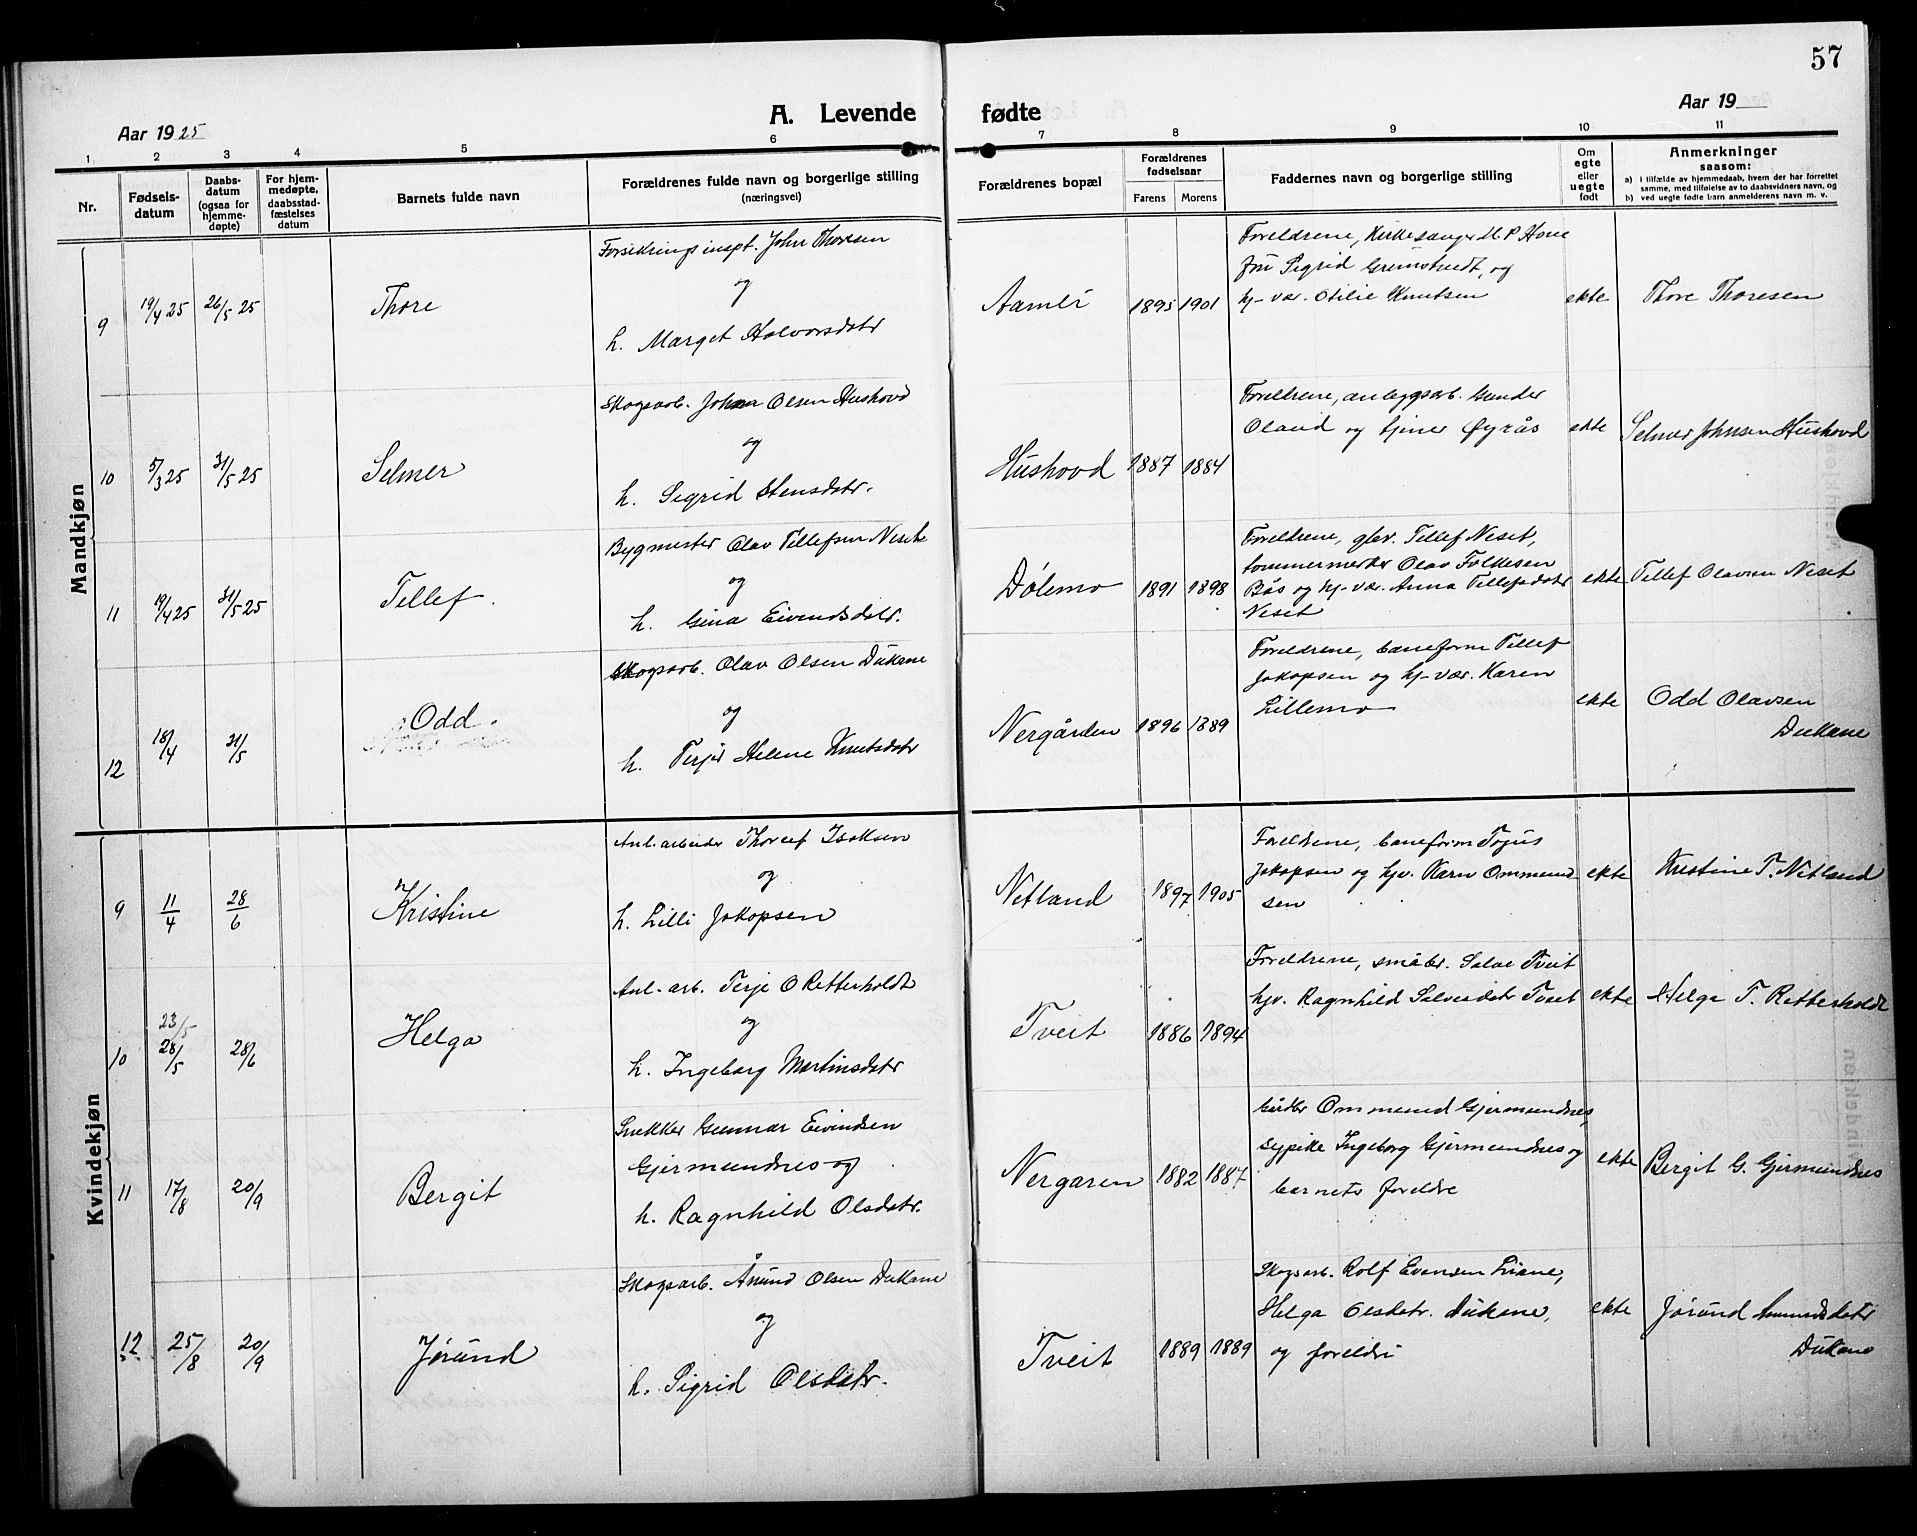 57
A. Levende fødte
Aar 1925
Aar 19
1 2 3 4 5 6 7 8 9 10 11
Nr.
Fødsels-
datum
Daabs-
datum
(ogsaa for
hjemme-
døpte)
For hjem-
medøpte,
daabsstad-
fæstelses
datum
Barnets fulde navn
Forældrenes fulde navn og borgerlige stilling
(næringsvei)
Forældrenes bopæl
Forældrenes
fødselsaar
Farens Morens
Faddernes navn og borgerlige stilling
Om
egte
eller
uegte
født
Anmerkninger
saasom:
a) i tilfælde av hjemmedaab, hvem der har forrettet
samme, med tilføielse av to daabsvidners navn, og
b) ved uegte fødte barn anmelderens navn m. v.
Mandkjøn
9 19/4 25 26/5 25 Thore
Forsikringsinspt. John Thoresen
og
h. Marget Halvorsdatr
Aamli 1895 1901
Foreldrene, Kirkesanger M. P. Hove
frū Sigrid Grimstvedt, og
hj-vær. Otilie Knutsen
ekte Thore Thoresen
10 5/3 25 31/5 25 Selmer
Skogsarb. Johan Olsen Hushovd
og
h. Sigrid Stensdatr.
Hushovd 1887 1884
Foreldrene, anleggsarb. Gunder
Oland og tjener Øyrås
ekte Selmer Johnsen Hushovd
11 19/4 25 31/5 25 Tellef
Bygmester Olav Tellefsen Neset
og
h. Gina Eivendsdatr.
Dølemo 1891 1898
Foreldrene, gbr. Tellef Neset,
tommermerker Olav Folkesen
Bås og hj-vær. Anna Tellefsdatr
Neset
ekte Tellef Olavsen Neset
12 18/4 31/5 Odd
Skogsarb. Olav Olsen Dūkane
og
h. Terjer Helene Knutsdatr
Nergården 1896 1889
Foreldrene, baneform Tellef
Jakopsen og hj-vær. Karen
Lillemo
ekte Odd Olavsen
Dukane
Kvindekjøn
9 11/4 28/6 Kristine
Anl. arbeider Thorleif Isaksen
og
h. Lilli Jakopsen
Netland 1897 1905
Foreldrene, baneform Tojus
Jakopsen og hjv. Karn Ommund-
sen
ekte Kristine T. Netland
10 23/5 28/5 28/6 Helga
Anl-arb. Terje O Retterholdt
og
h. Ingeborg Martinsdatr
Tveit 1886 1894
Foreldrene, småbr. Salve Tveit
hjv. Ragnhild Salvesdatr Tveit
ekte Helga T. Retterholdt
11 17/8 20/9 Bergit
Snekker Gunnar Eivindsen
Gjermundnes og
h. Ragnhild Olsdatr.
Nergaren 1882 1887
Gårdbr Ommund Gjermundnes,
sypike Ingeborg Gjermundnes og
barnets foreldre
ekte Bergit G. Gjermundnes
12 25/8 20/9 Jørūnd
Skogsarb. Ånūnd Olsen Dukane
og
h. Sigrid Olsdatr.
Tveit 1889 1889
Skogsarb. Rolf Evensen Liane,
Helga Olsdatr. Dūkane,
og foreldri
ekte Jørūnd Anundsdatr
Dukane